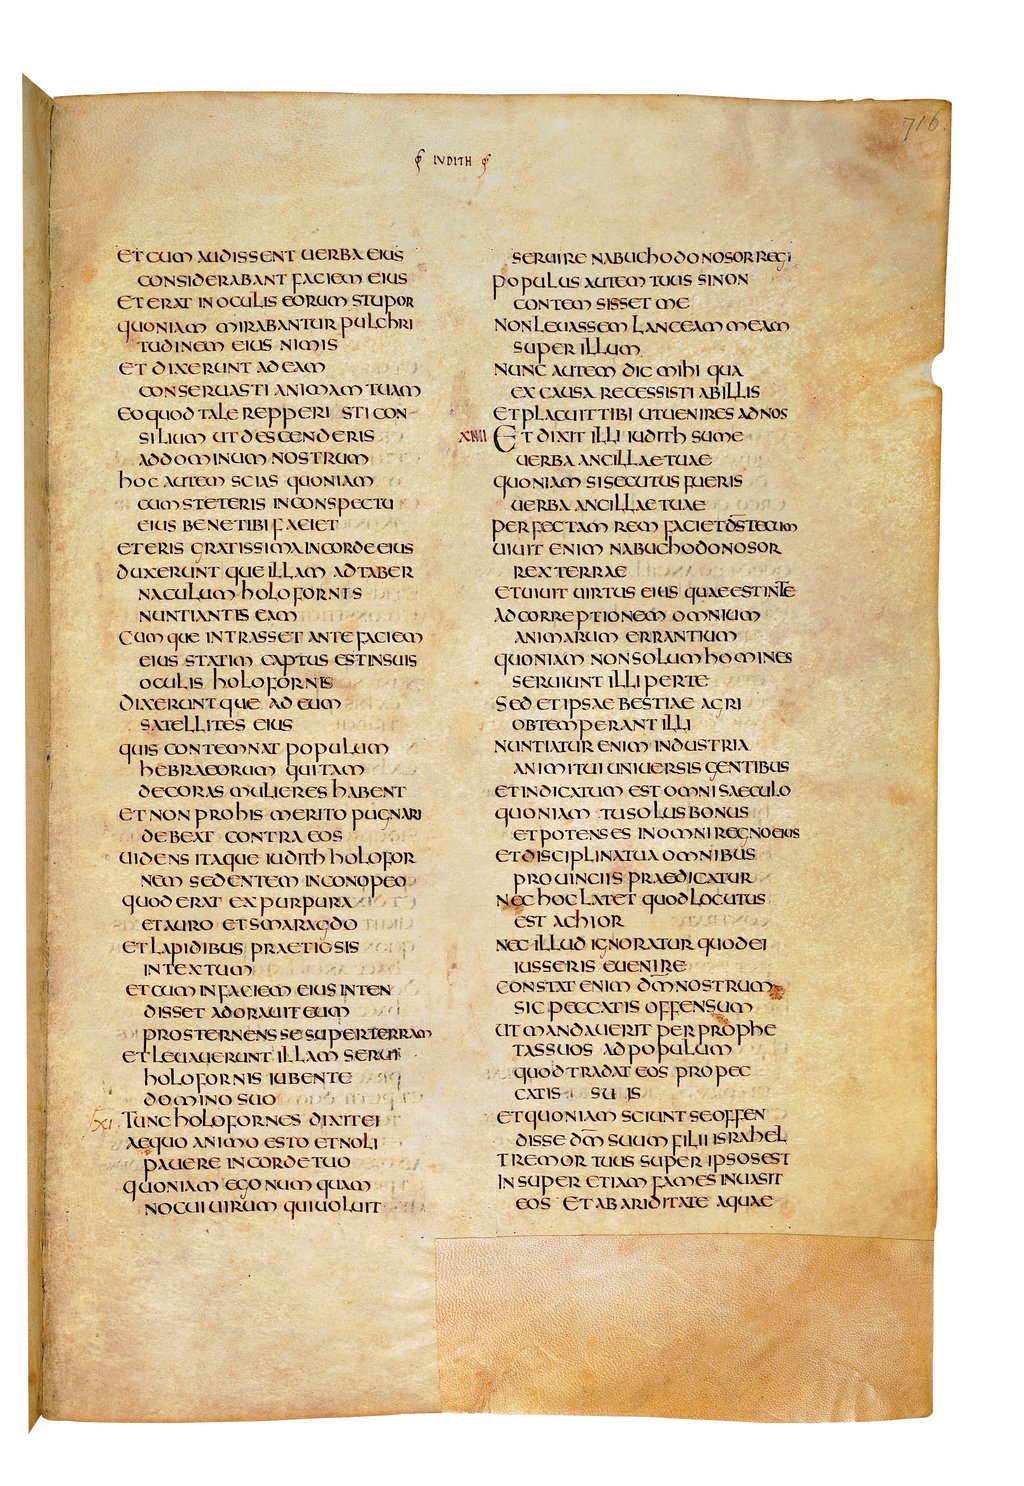 IUDITH
716.
ET CUM AUDISSENT UERBA EIUS
CONSIDERABANT FACIEM EIUS
ET ERAT IN OCULIS EORUM STUPOR
QUONIAM MIRABANTUR PULCHRI
TUDINEM EIUS NIMIS
ET DIXERUNT AD EAM
CONSERUASTI ANIMAM TUAM
EO QUOD TALE REPPERI STI CON
SILIUM UT DESCENDERIS
AD DOMINUM NOSTRUM
HOC AUTEM SCIAS QUONIAM
CUM STETERIS IN CONSPECTU
EIUS BENE TIBI FACIET
ET ERIS GRATISSIMA IN CORDE EIUS
DUXERUNT QUE ILLAM AD TABER
NACULUM HOLOFORNIS
NUNTIANTIS EAM
CUMQUE INTRASSET ANTE FACIEM
EIUS STATIM CAPTUS EST IN SUIS
OCULIS HOLOFORNIS
DIXERUNTQUE AD EUM
SATELLITES EIUS
QUIS CONTEMNAT POPULUM
HEBRAEORUM QUI TAM
DECORAS MULIERES HABENT
ET NON PRO HIS MERITO PUGNARI
DEBEAT CONTRA EOS
UIDENS ITAQUE IUDITH HOLOFOR
NEM SEDENTEM IN CONOPEO
QUOD ERAT EX PURPURA
ET AURO ET SMARAGDO
ET LAPIDIBUS PRAETIOSIS
INTEXTUM
ET CUM IN FACIEM EIUS INTEN
DISSET ADORAUIT EUM
PROSTERNENS SE SUPER TERRAM
ET LEUAUERUNT ILLAM SERUI
HOLOFORNIS IUBENTE
DOMINO SUO
XI TUNC HOLOFORNES DIXIT EI
AEQUO ANIMO ESTO ET NOLI
PAUERE IN CORDE TUO
QUONIAM EGO NUMQUAM
NOCUI UIRUM QUI UOLUIT
SERUIRE NABUCHODONOSOR REGI
POPULUS AUTEM TUUS SI NON
CONTEMSISSET ME
NON LEUASSEM LANCEAM MEAM
SUPER ILLUM
NUNC AUTEM DIC MIHI QUA
EX CAUSA RECESSISTI AB ILLIS
ET PLACUIT TIBI UT UENIRES AD NOS
XIIII ET DIXIT ILLI IUDITH SUME
UERBA ANCILLAE TUAE
QUONIAM SI SECUTUS FUERIS
UERBA ANCILLAE TUAE
PERFECTAM REM FACIET D̅S̅ TECUM
UIUIT ENIM NABUCHODONOSOR
REX TERRAE
ET UIUIT UIRTUS EIUS QUAE EST IN TE
AD CORREPTIONEM OMNIUM
ANIMARUM ERRANTIUM
QUONIAM NON SOLUM HOMINES
SERUIUNT ILLI PER TE
SED ET IPSAE BESTIAE AGRI
OBTEMPERANT ILLI
NUNTIATUR ENIM INDUSTRIA
ANIMI TUI UNIUERSIS GENTIBUS
ET INDICATUM EST OMNI SAECULO
QUONIAM TU SOLUS BONUS
ET POTENS ES IN OMNI REGNO EIUS
ET DISCIPLINA TUA OMNIBUS
PROUINCIIS PRAEDICATUR
NEC HOC LATET QUOD LOCUTUS
EST ACHIOR
NEC ILLUD IGNORATUR QUOD EI
IUSSERIS EUENIRE
CONSTAT ENIM D̅M̅ NOSTRUM
SIC PECCATIS OFFENSUM
UT MANDAUERIT PER PROPHE
TAS SUOS AD POPULUM
QUOD TRADAT EOS PRO PEC
CATIS SUIS
ET QUONIAM SCIUNT SE OFFEN
DISSE D̅M̅ SUUM FILII ISRAHEL
TREMOR TUUS SUPER IPSOS EST
IN SUPER ETIAM FAMES INUASIT
EOS ET AB ARIDITATE AQUAE